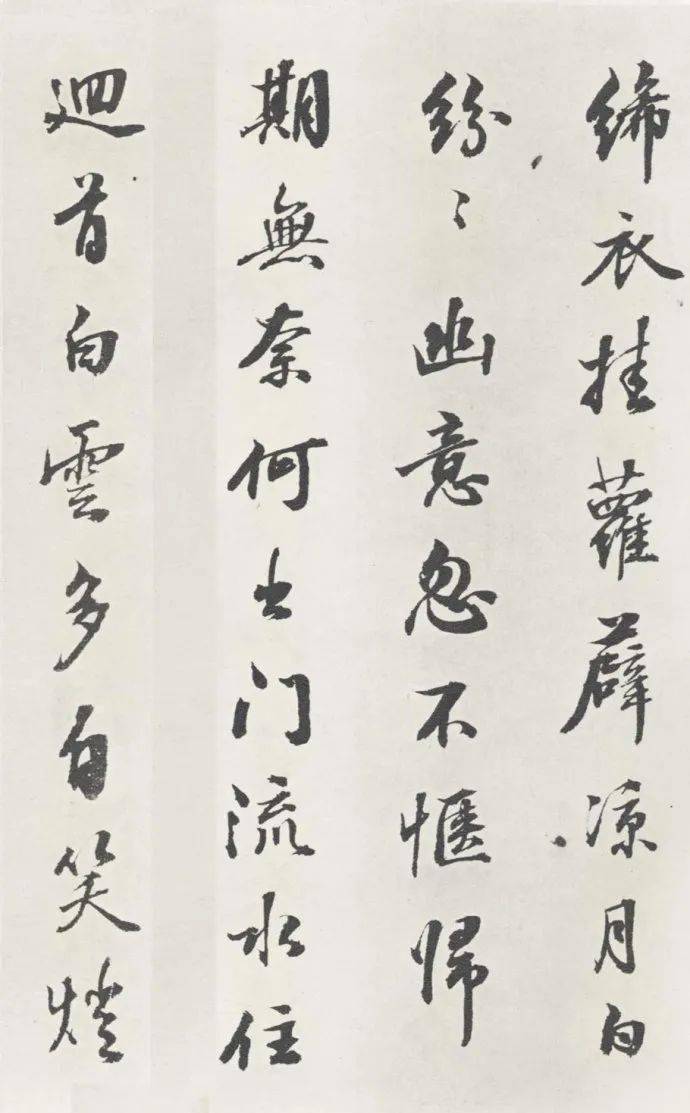 絺衣挂蘿薜凉月白
紛〻幽意忽不愜帰
期無奈何出门流水住
迴首白雲多自笑燈